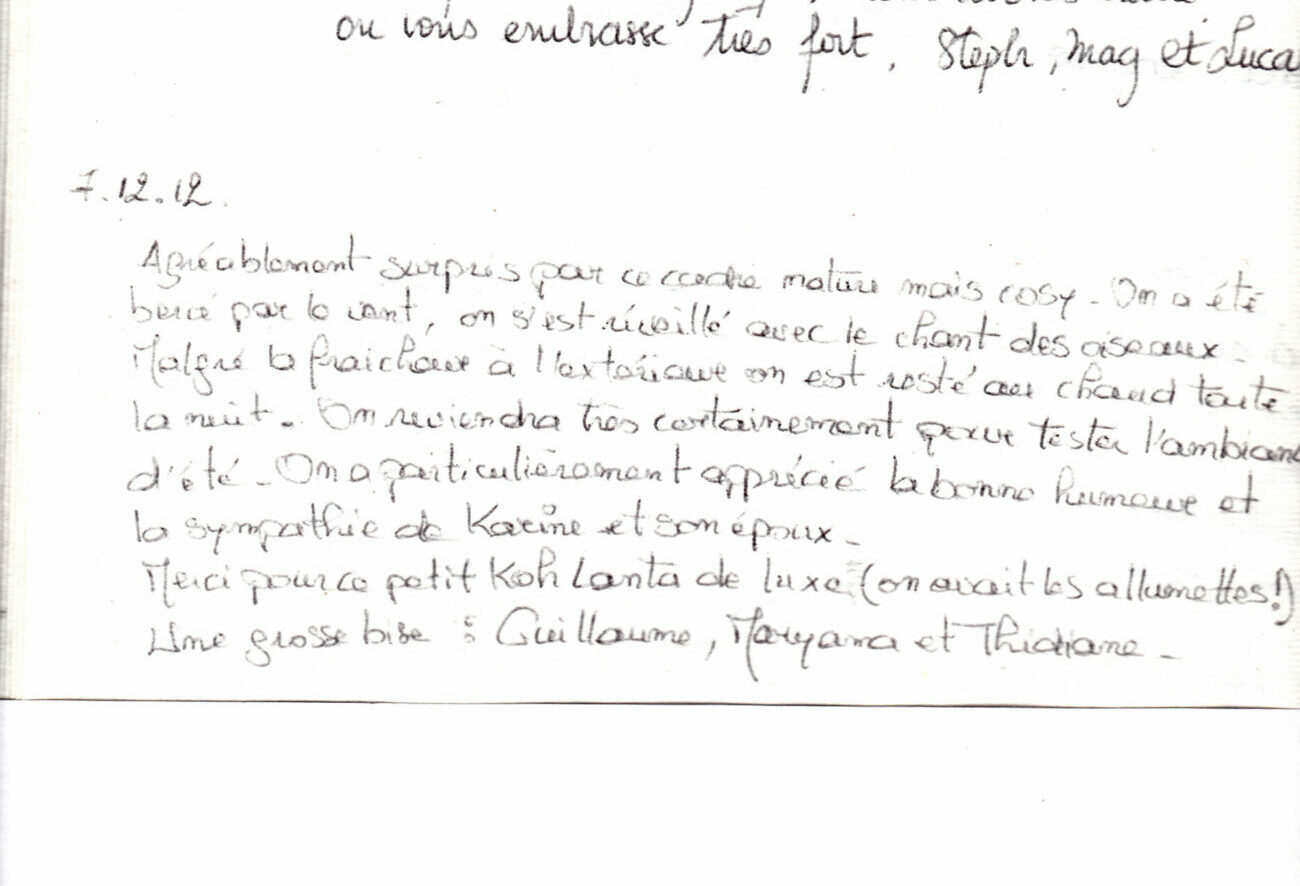 ou vous embrasse très fort. Steph, Mag et Luca
7.12.12.
Agréablement surpris par ce cadre nature mais cosy. On a été
bercé par le vent, on s'est réveillé avec le chant des oiseaux.
Malgré la fraicheur à l'extérieur on est resté au chaud toute
la nuit. On reviendra très certainement pour tester l'ambianc
d'été. On a particulièrement apprécié la bonne humeur et
la sympathie de Karine et son époux.
Merci pour ce petit Koh Lanta de luxe (on avait les allumettes!)
Une grosse bise : Guillaume, Maryama et Thidiane.